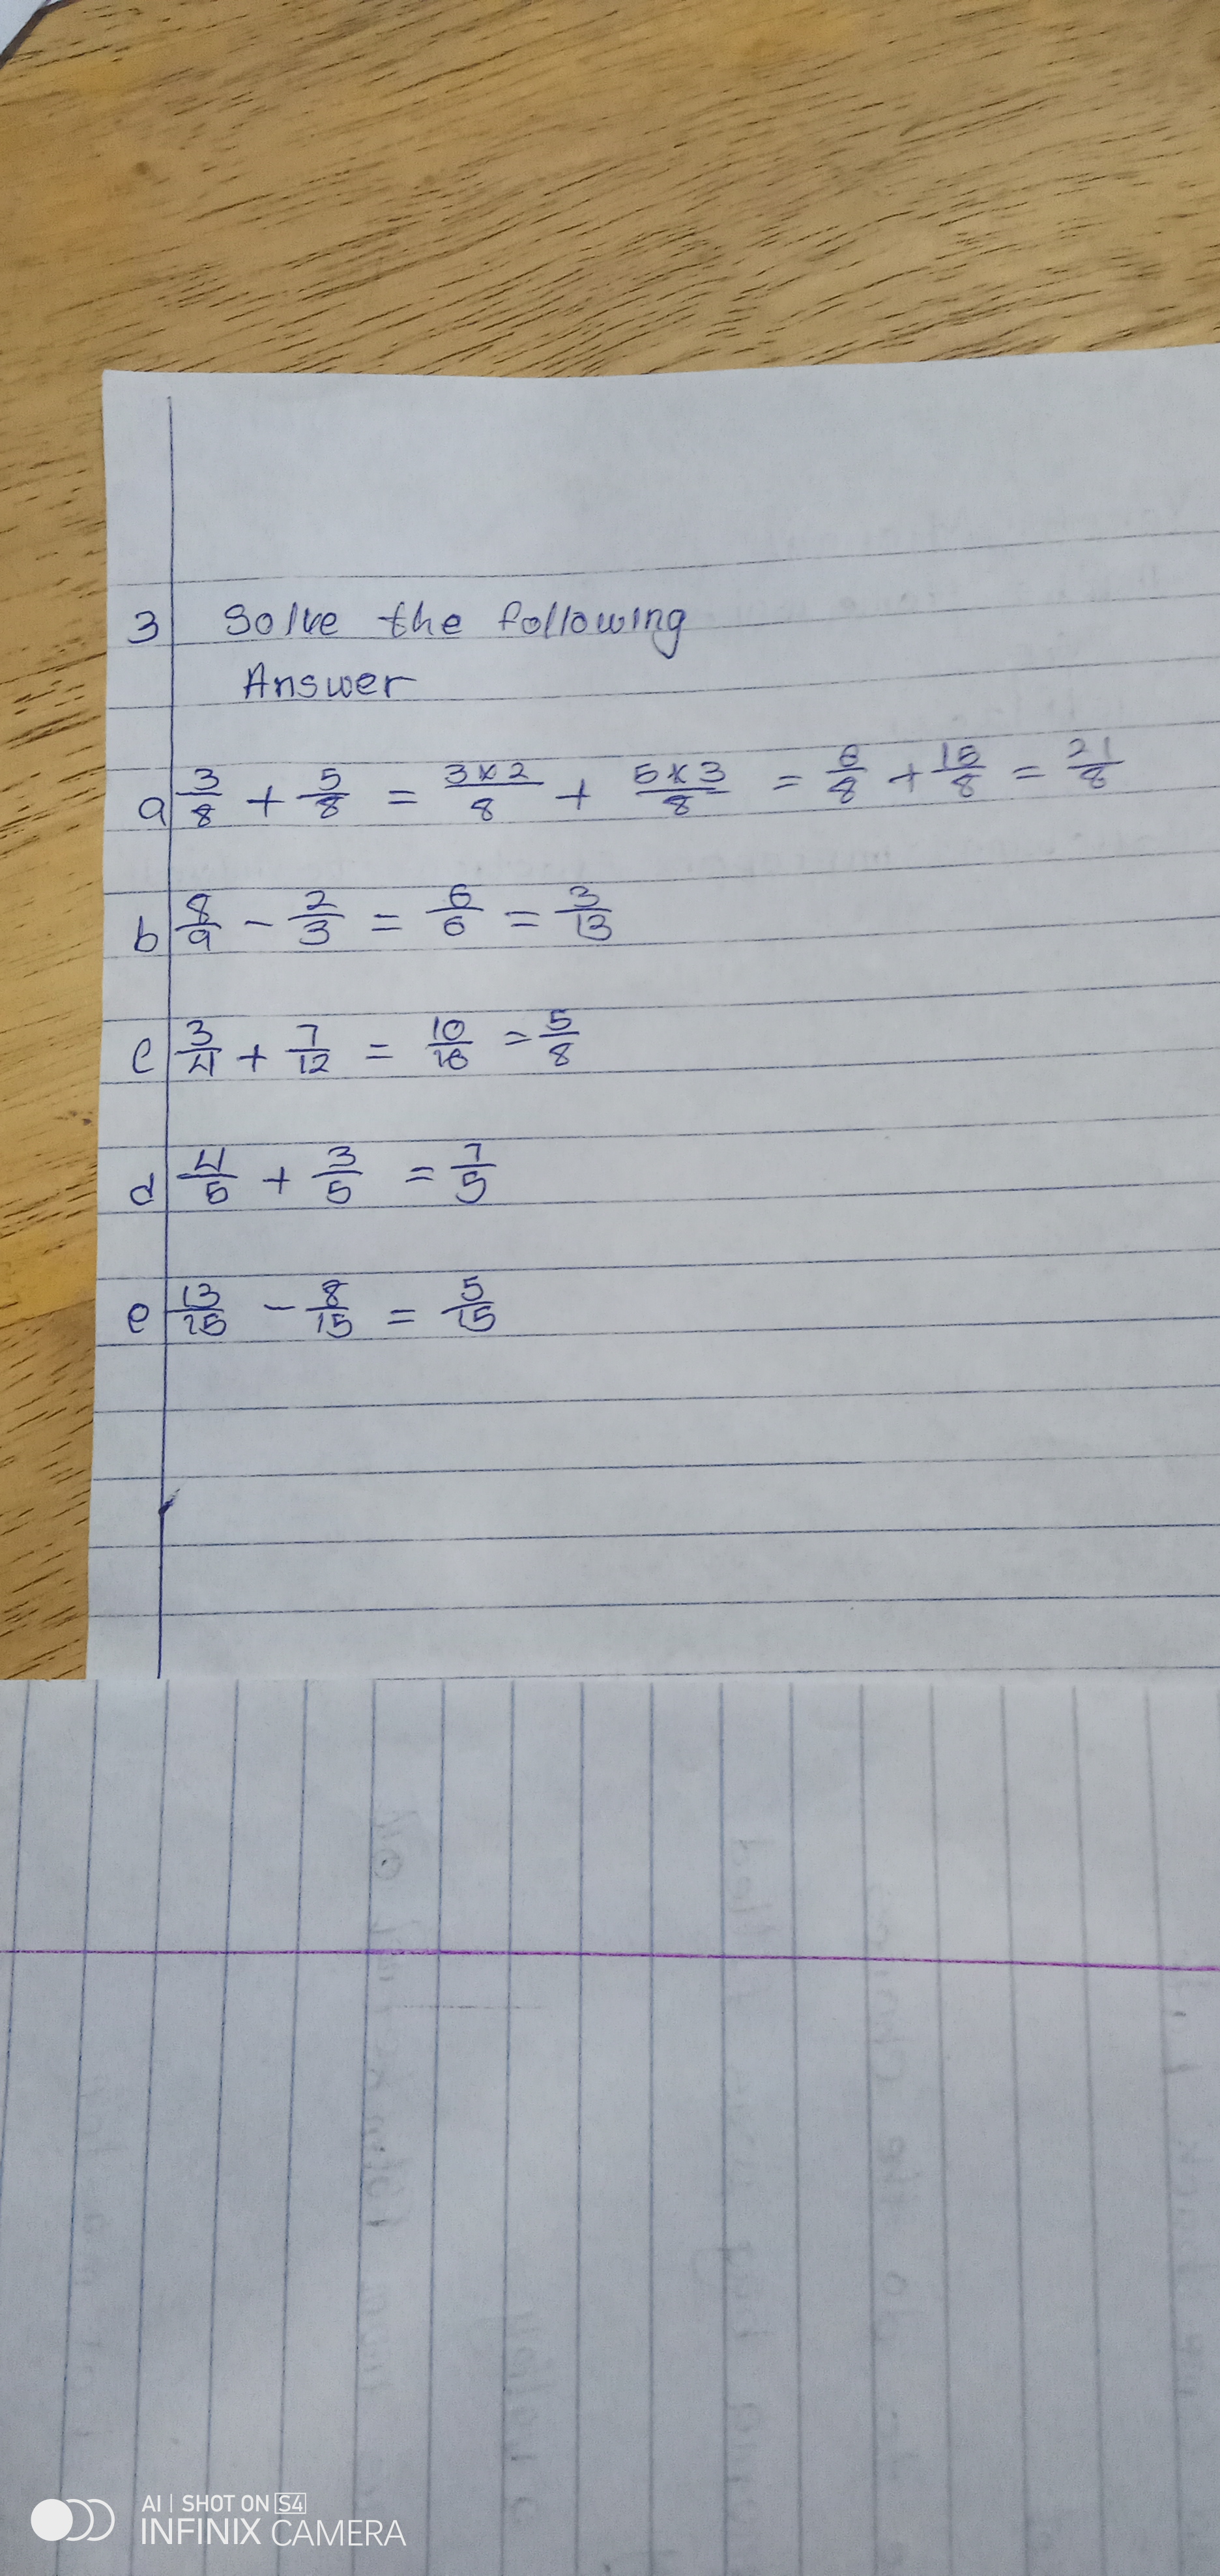 3 Solve the following
Answer
a 3/8 + 5/8 = 3x2/8 + 5x3/8 = 6/8 + 15/8 = 21/8
b 8/9 - 2/3 = 6/6 = 3/13
c 3/4 + 7/12 = 10/16 = 5/8
d 4/5 + 3/5 = 7/5
e 13/15 - 8/15 = 5/15
AI | SHOT ON S4
INFINIX CAMERA